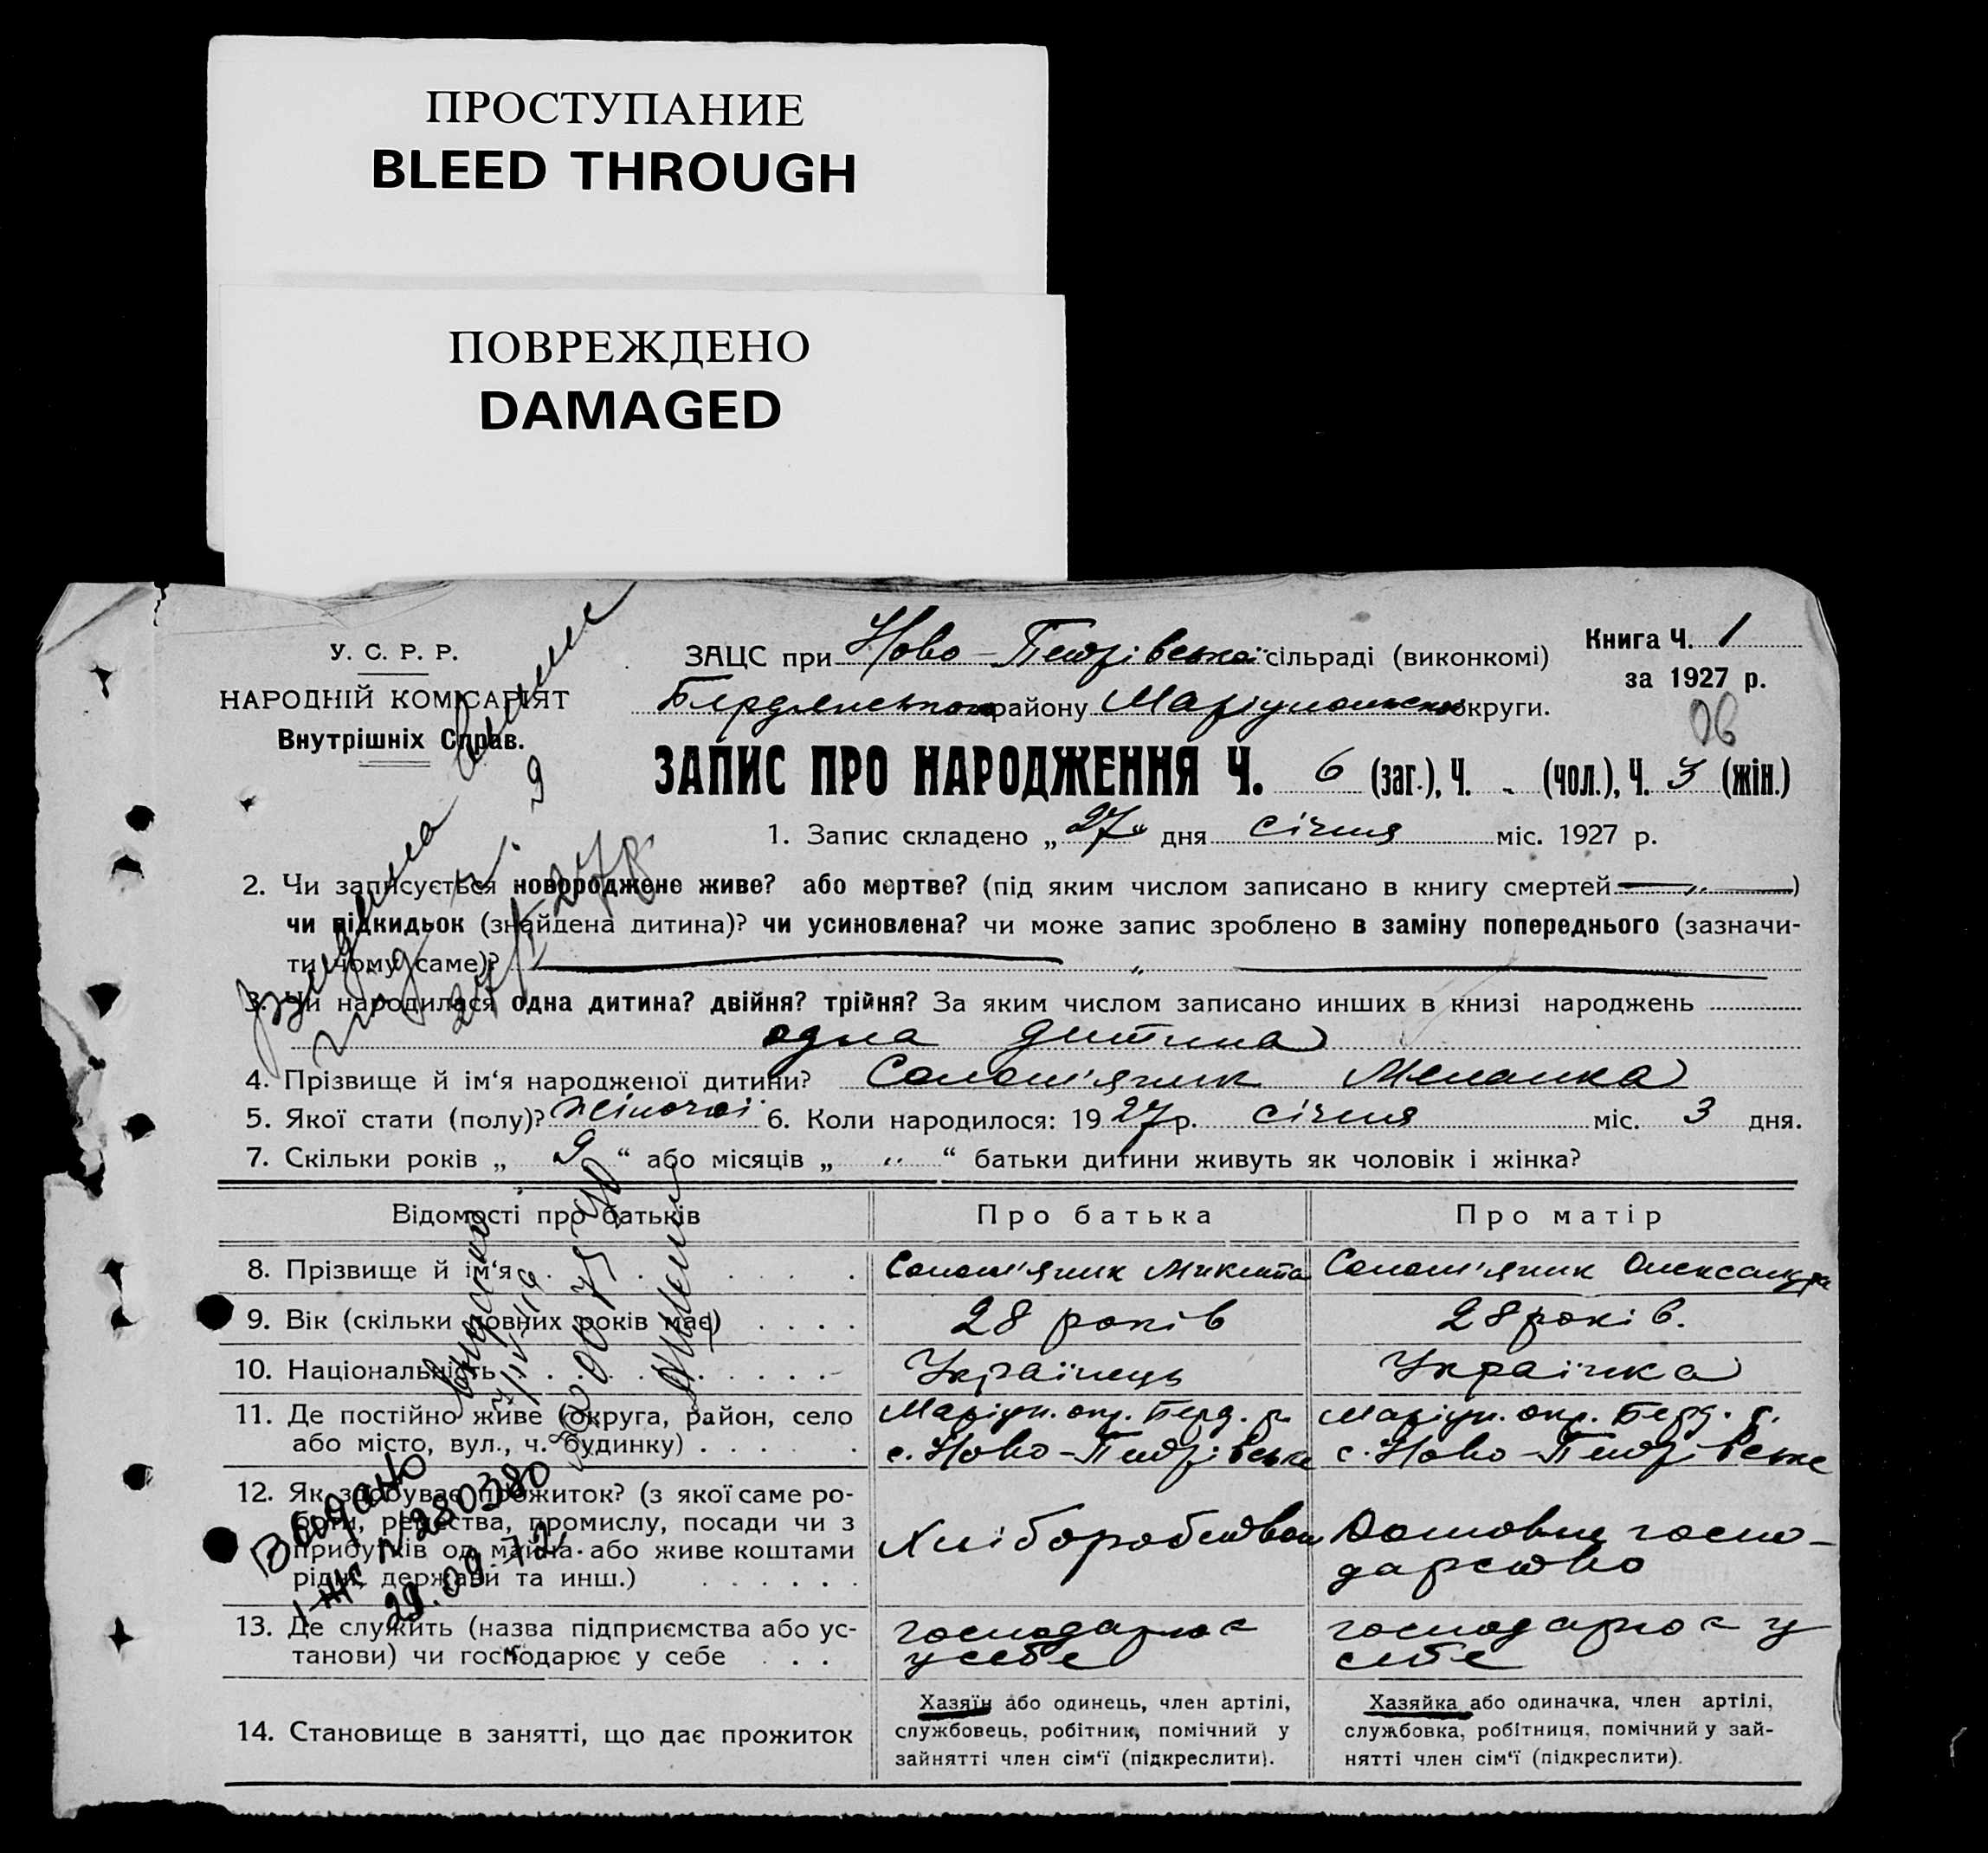 ПРОСТУПАНИЕ
BLEED THROUGH
ПОВРЕЖДЕНО
DAMAGED
У. С. Р. Р.
НАРОДНІЙ КОМІСАРІЯТ
Внутрішніх Справ.
ЗАЦС при Ново-Петрівської сільраді (виконкомі)
Бердянського району Маріупольської округи.
Книга Ч. 1
за 1927 р.
ЗАПИС ПРО НАРОДЖЕННЯ Ч. 6 (заг.), Ч. - (чол.), Ч. 3 (жін.)
1. Запис складено „27“ дня січня міс. 1927 р.
2. Чи записується новороджене живе? або мертве? (під яким числом записано в книгу смертей — „ —)
чи підкидьок (знайдена дитина)? чи усиновлена? чи може запис зроблено в заміну попереднього (зазначи-
ти чому саме)? — „ —
3. Чи народилася одна дитина? двійня? трійня? За яким числом записано инших в книзі народжень
одна дитина
4. Прізвище й ім‘я народженої дитини? Солом'яник Меланка
5. Якої стати (полу)? Жіночої 6. Коли народилося: 1927 р. січня міс. 3 дня.
7. Скільки років „ 9 “ або місяців „ „ “ батьки дитини живуть як чоловік і жінка?
Відомості про батьків
Про батька
Про матір
8. Прізвище й ім‘я
Солом'яник Микита
Солом'яник Олександра
9. Вік (скільки повних років має)
28 років
28 років.
10. Національність
Українець
Українка
11. Де постійно живе (округа, район, село
або місто, вул., ч. будинку)
Маріуп. окр. Берд. р.
с. Ново-Петрівське
Маріуп. окр. Берд. р.
с. Ново-Петрівське
12. Як здобуває прожиток? (з якої саме ро-
боти, ремества, промислу, посади чи з
прибутків од майна або живе коштами
рідні, держави та инш.)
Хліборобством
Домовне госпо-
дарство
13. Де служить (назва підприємства або ус-
танови) чи господарює у себе
господарює
у себе
господарює у
себе
14. Становище в занятті, що дає прожиток
Хазяїн або одинець, член артілі,
службовець, робітник, помічний у
зайнятті член сім‘ї (підкреслити).
Хазяйка або одиначка, член артілі,
службовка, робітниця, помічний у зай-
нятті член сім‘ї (підкреслити).
Видано
I-ЖС N 280380
29.09.72.